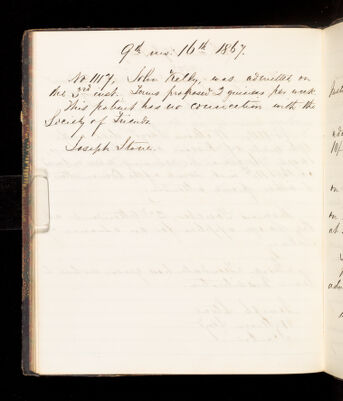 9th mo: 16th 1867.
No 1117, John Kelly, was admitted on
the 3rd inst. Terms proposed 2 guineas per week
This patient has no connection with the
Society of Friends
Joseph Stone.